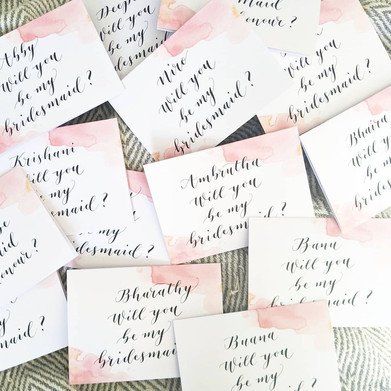 Deepi
Maid
onour?
Abby
Will you
be my
bridesmaid?
Niro
Will you
be my
bridesmaid?
Will you
be my
bridesmaid?
Krishani
Will you
be my
maid?
maid?
Ambratha
Will you
be my
bridesm
Will you
be my
bridesmai
aid
onour?
maid?
Bharathy
Will you
be my
bridesmaid
Banu
Will you
be my
bridesmaid?
Buana
Will you
be my
bridesmaid?